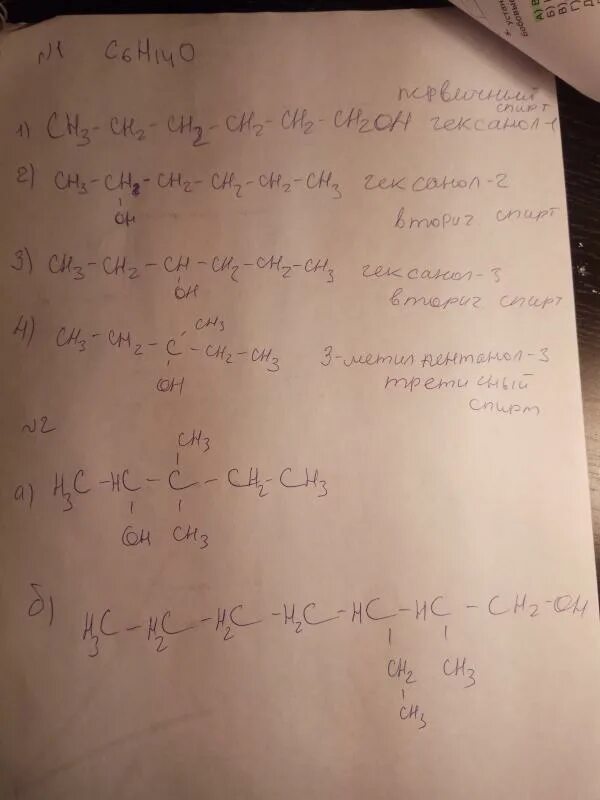 №1 C6H14O
первичный
спирт
1) CH3-CH2-CH2-CH2-CH2-CH2OH гексанол-1
2) CH3-CH2-CH2-CH2-CH2-CH3 гексанол-2
OH
вторич спирт
3) CH3-CH2-CH-CH2-CH2-CH3 гексанол-3
OH
вторич спирт
CH3
4) CH3-CH2-C-CH2-CH3 3-метил пентанол-3
OH
третисный
спирт
№2
CH3
а) H3C-HC-C-CH2-CH3
OH CH3
б) H3C-H2C-H2C-H2C-HC-HC-CH2-OH
CH2 CH3
CH3